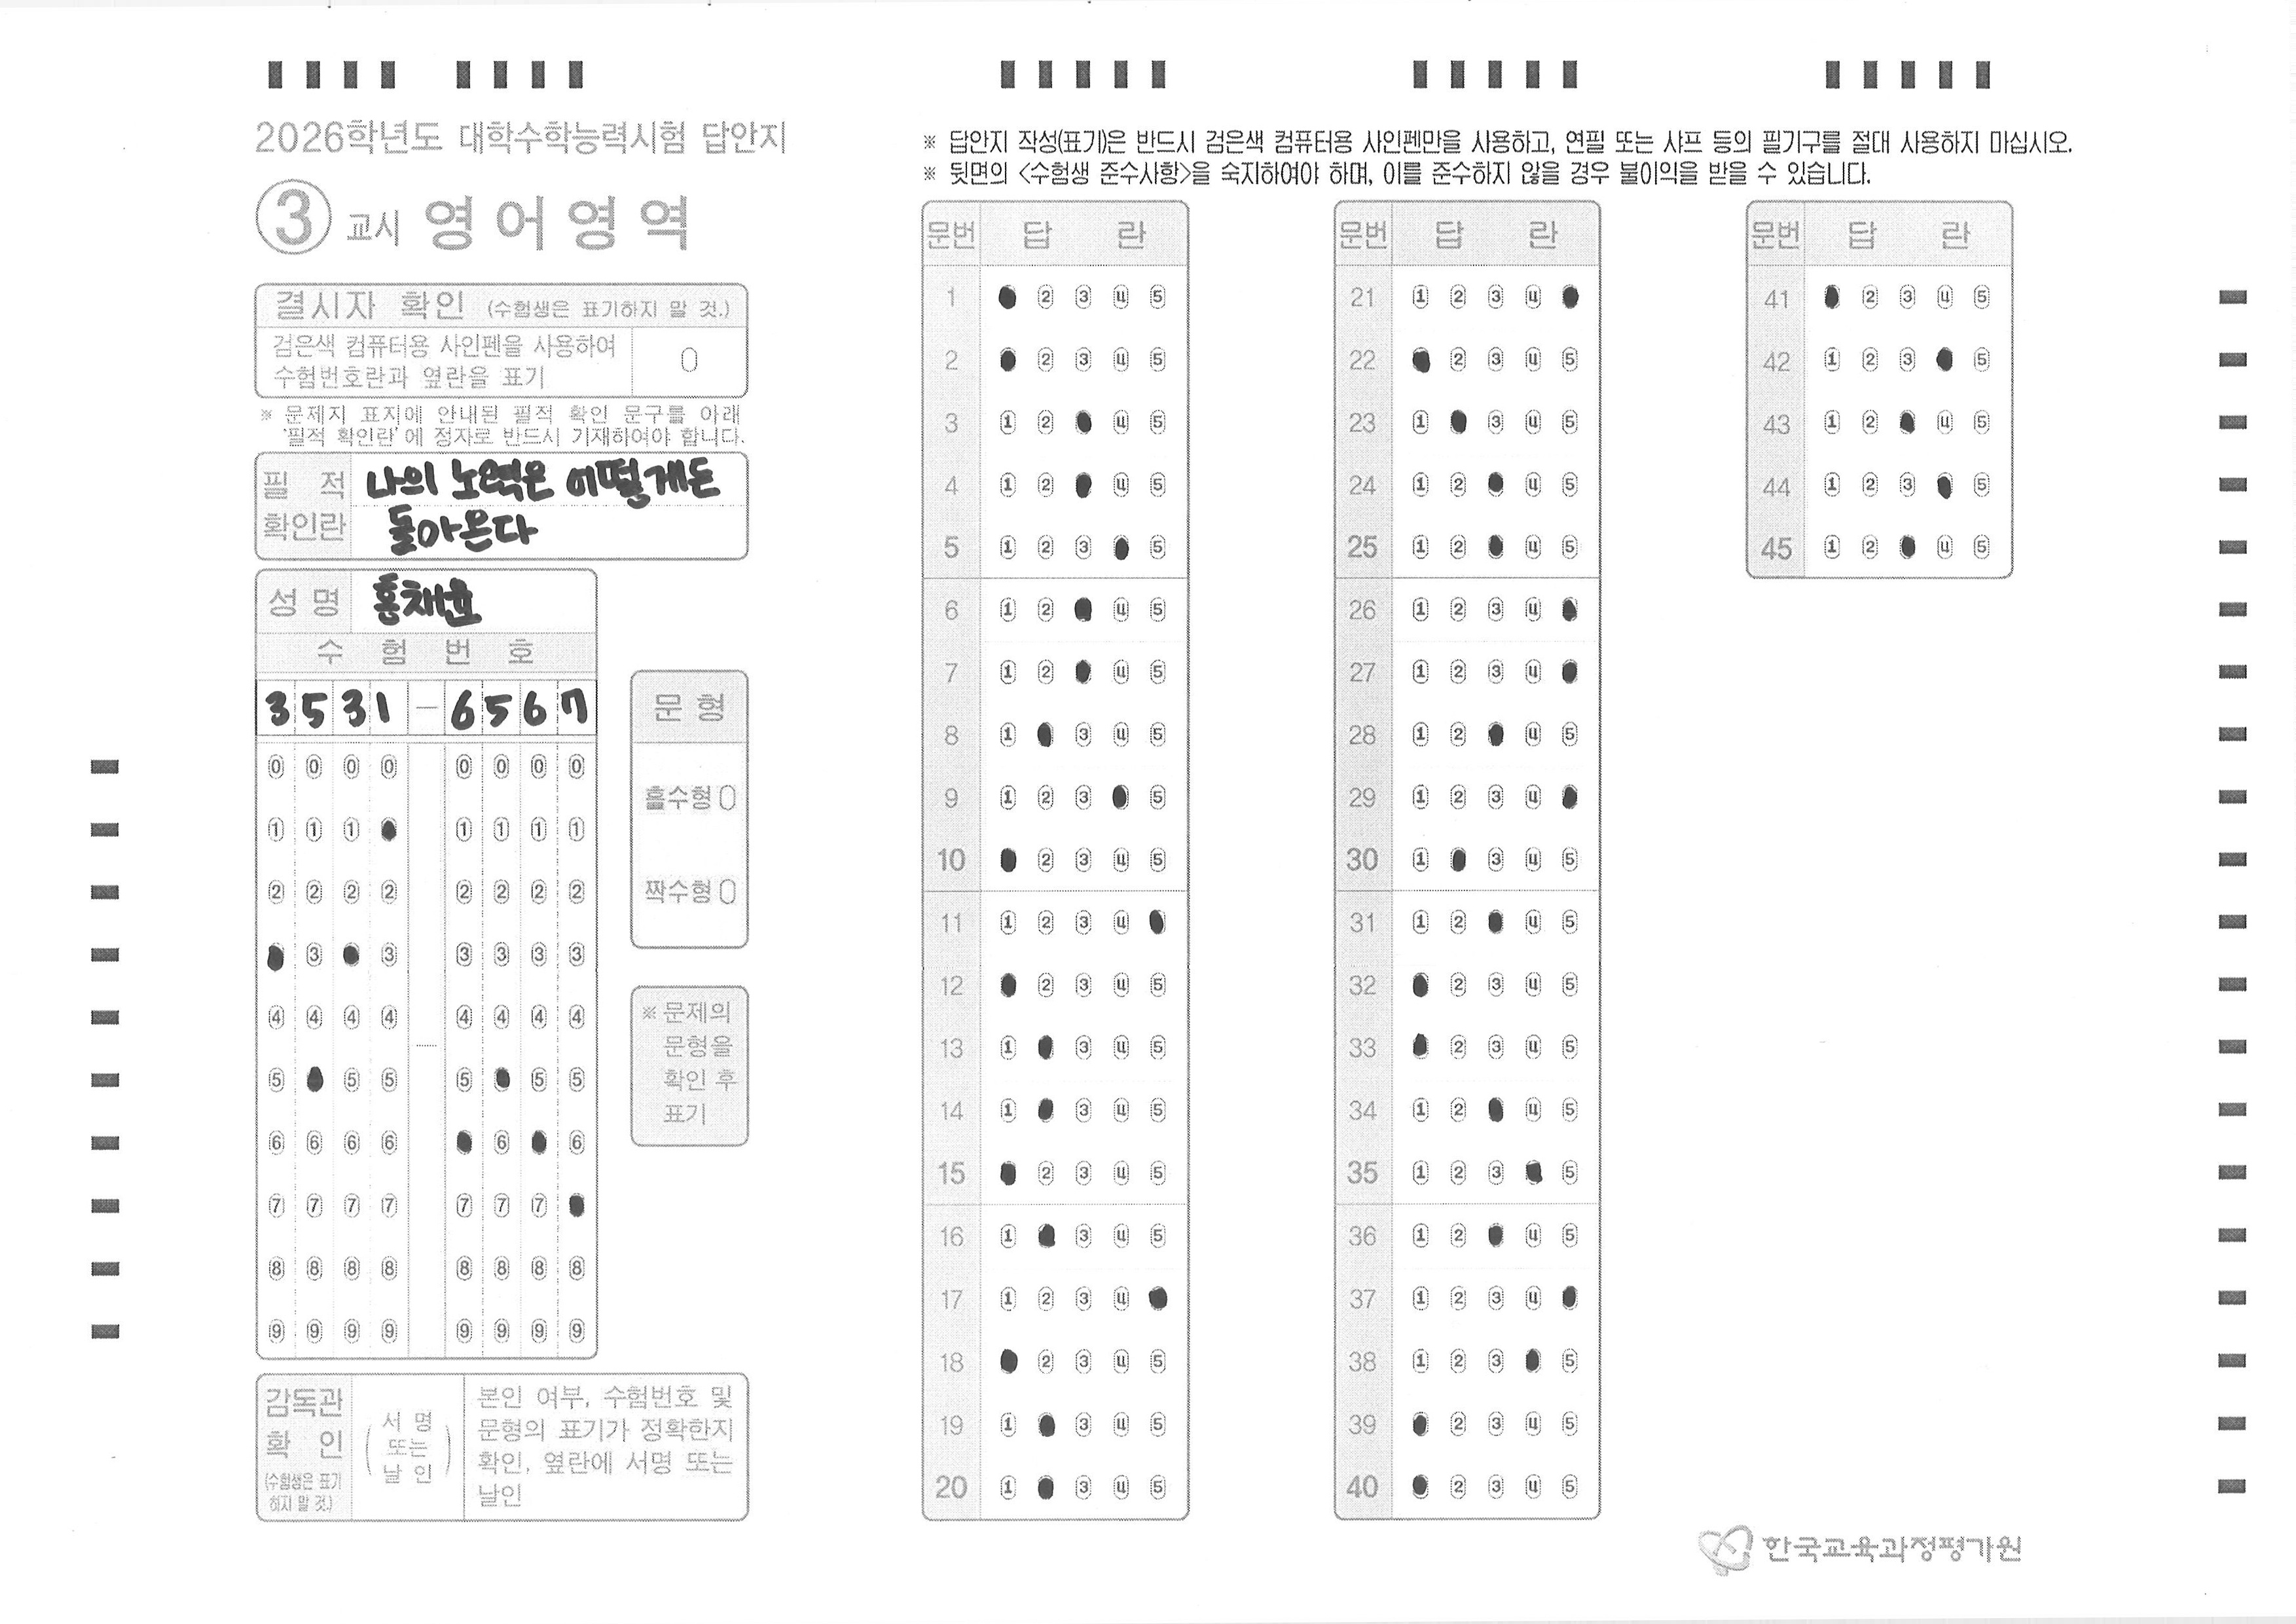 2026학년도 대학수학능력시험 답안지
3 교시 영어영역
결시자 확인 (수험생은 표기하지 말 것.)
검은색 컴퓨터용 사인펜을 사용하여
수험번호란과 옆란을 표기
0
※ 문제지 표지에 안내된 필적 확인 문구를 아래
'필적 확인란'에 정자로 반드시 기재하여야 합니다.
필 적
확인란
나의 노력은 어떻게든
돌아온다
성명 홍채윤
수 험 번 호
3 5 3 1 - 6 5 6 7
0 0 0 0 0 0 0 0
1 1 1 1 1 1 1
2 2 2 2 2 2 2 2
3 3 3 3 3 3
4 4 4 4 4 4 4 4
5 5 5 5 5 5
6 6 6 6 6 6
7 7 7 7 7 7 7
8 8 8 8 8 8 8 8
9 9 9 9 9 9 9 9
문 형
홀수형
짝수형
※ 문제의
문형을
확인 후
표기
감독관
확 인
(수험생은 표기
하지 말 것.)
서 명
또는
날 인
본인 여부, 수험번호 및
문형의 표기가 정확한지
확인, 옆란에 서명 또는
날인
※ 답안지 작성(표기)은 반드시 검은색 컴퓨터용 사인펜만을 사용하고, 연필 또는 샤프 등의 필기구를 절대 사용하지 마십시오.
※ 뒷면의 <수험생 준수사항>을 숙지하여야 하며, 이를 준수하지 않을 경우 불이익을 받을 수 있습니다.
문번 답 란
1 2 3 4 5
2 2 3 4 5
3 1 2 4 5
4 1 2 4 5
5 1 2 3 5
6 1 2 4 5
7 1 2 4 5
8 1 3 4 5
9 1 2 3 5
10 2 3 4 5
11 1 2 3 4
12 2 3 4 5
13 1 3 4 5
14 1 3 4 5
15 2 3 4 5
16 1 3 4 5
17 1 2 3 4
18 2 3 4 5
19 1 3 4 5
20 1 3 4 5
문번 답 란
21 1 2 3 4
22 2 3 4 5
23 1 3 4 5
24 1 2 4 5
25 1 2 4 5
26 1 2 3 4
27 1 2 3 4
28 1 2 4 5
29 1 2 3 4
30 1 3 4 5
31 1 2 4 5
32 2 3 4 5
33 2 3 4 5
34 1 2 4 5
35 1 2 3 5
36 1 2 4 5
37 1 2 3 4
38 1 2 3 5
39 2 3 4 5
40 2 3 4 5
문번 답 란
41 2 3 4 5
42 1 2 3 5
43 1 2 4 5
44 1 2 3 5
45 1 2 4 5
한국교육과정평가원